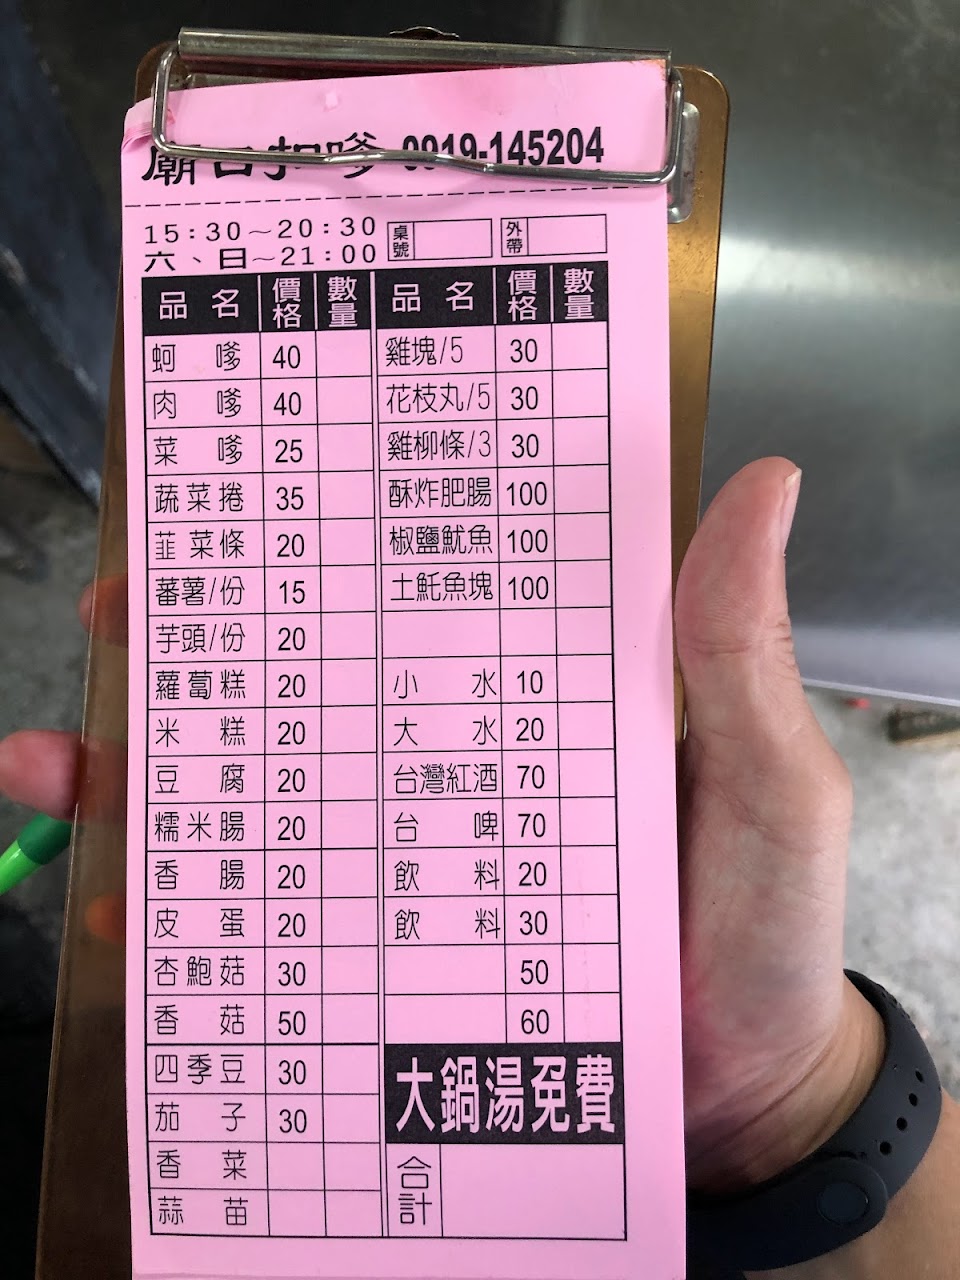 廟口扣嗲 0919-145204
15:30～20:30 桌號 外帶
六、日～21:00
品名 價格 數量 品名 價格 數量
蚵嗲 40 雞塊/5 30
肉嗲 40 花枝丸/5 30
菜嗲 25 雞柳條/3 30
蔬菜捲 35 酥炸肥腸 100
韮菜條 20 椒鹽魷魚 100
蕃薯/份 15 土魠魚塊 100
芋頭/份 20
蘿蔔糕 20 小水 10
米糕 20 大水 20
豆腐 20 台灣紅酒 70
糯米腸 20 台啤 70
香腸 20 飲料 20
皮蛋 20 飲料 30
杏鮑菇 30 50
香菇 50 60
四季豆 30 大鍋湯免費
茄子 30
香菜 合計
蒜苗